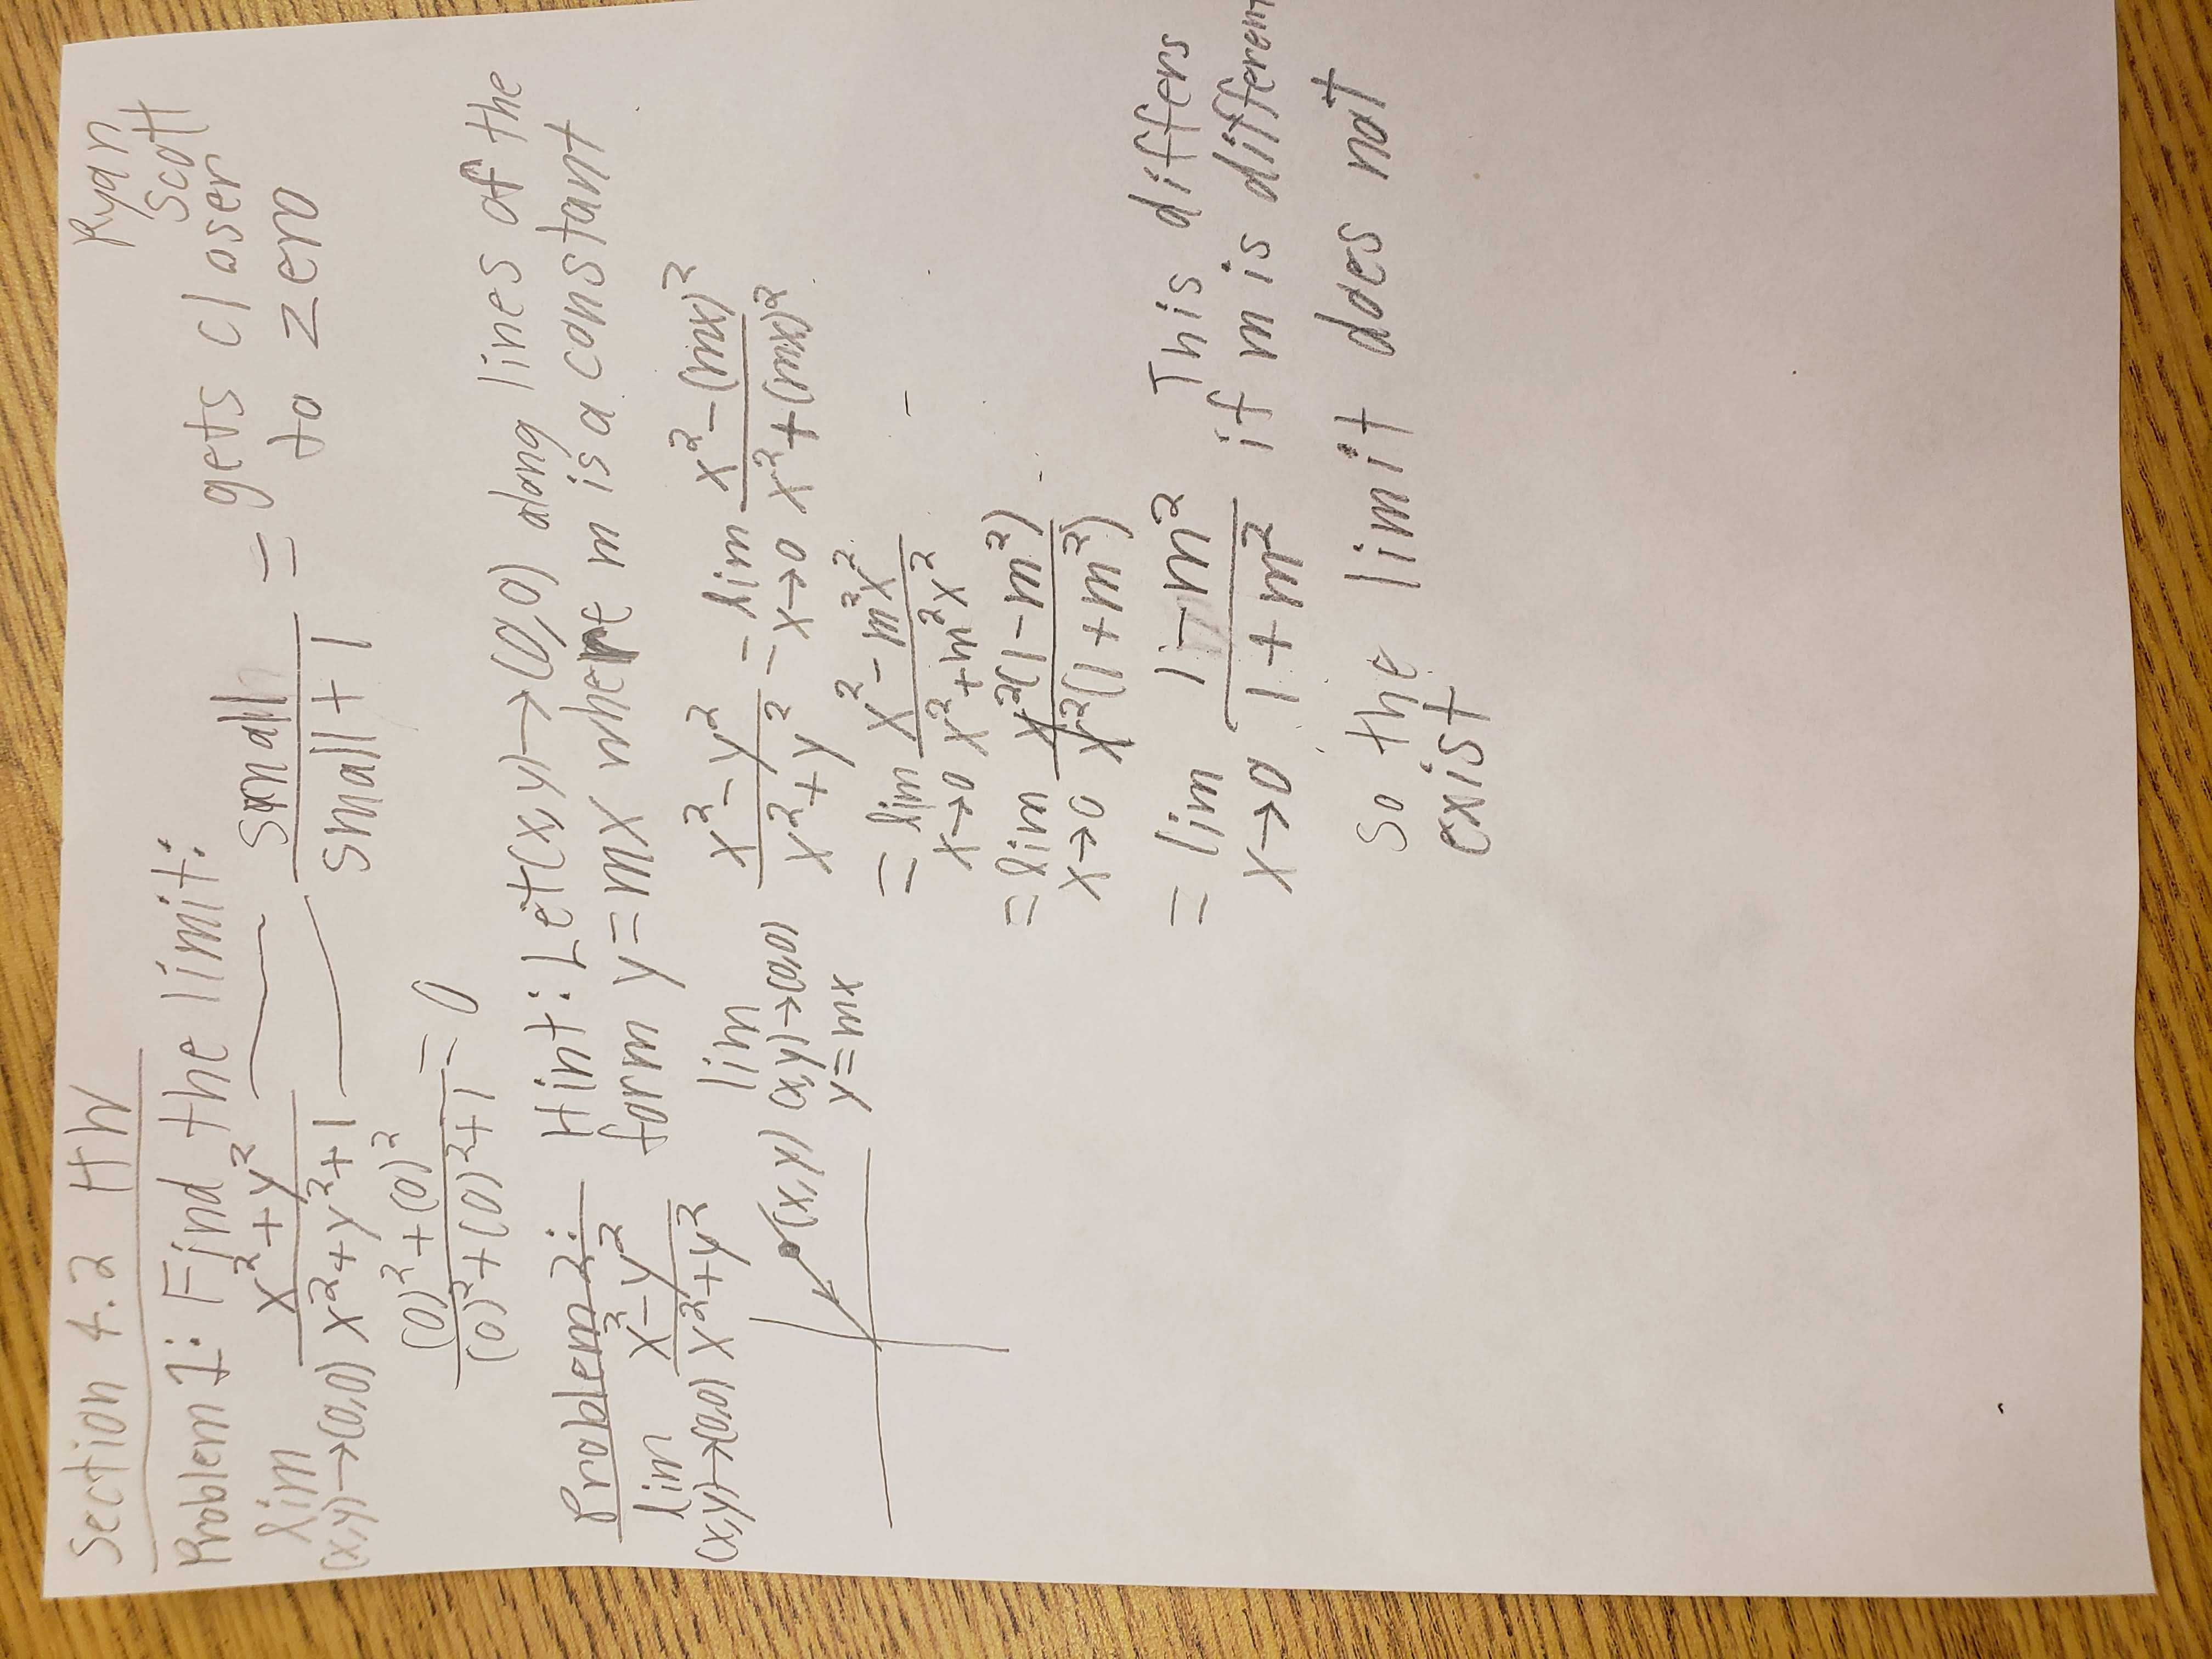 Section 4.2 HW
Ryan
Scott
Problem 1: Find the limit:
lim (x,y)→(0,0) (x²+y²)/(x²+y²+1) — small/(small+1) = gets closer to zero
((0)²+(0)²)/((0)²+(0)²+1) = 0
Problem 2: Hint: Let (x,y)→(0,0) along lines of the
form y=mx where m is a constant
lim (x,y)→(0,0) (x²-y²)/(x²+y²)
(x,y)
lim (x,y)→(0,0) y=mx (x²-y²)/(x²+y²) = lim x→0 (x²-(mx)²)/(x²+(mx)²)
= lim x→0 (x²-m²x²)/(x²+m²x²)
= lim x→0 (x²(1-m²))/(x²(1+m²))
= lim x→0 (1-m²)/(1+m²)
This differs
if m is different
So the limit does not
exist